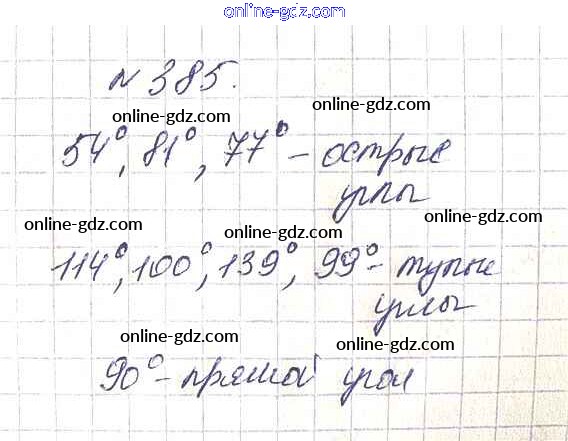 online-gdz.com
№ 385.
online-gdz.com online-gdz.com
54°, 81°, 77° - острые
углы
online-gdz.com online-gdz.com
114°, 100°, 139°, 99° - тупые
углы
online-gdz.com online-gdz.com
90° - прямой угол
online-gdz.com online-gdz.com